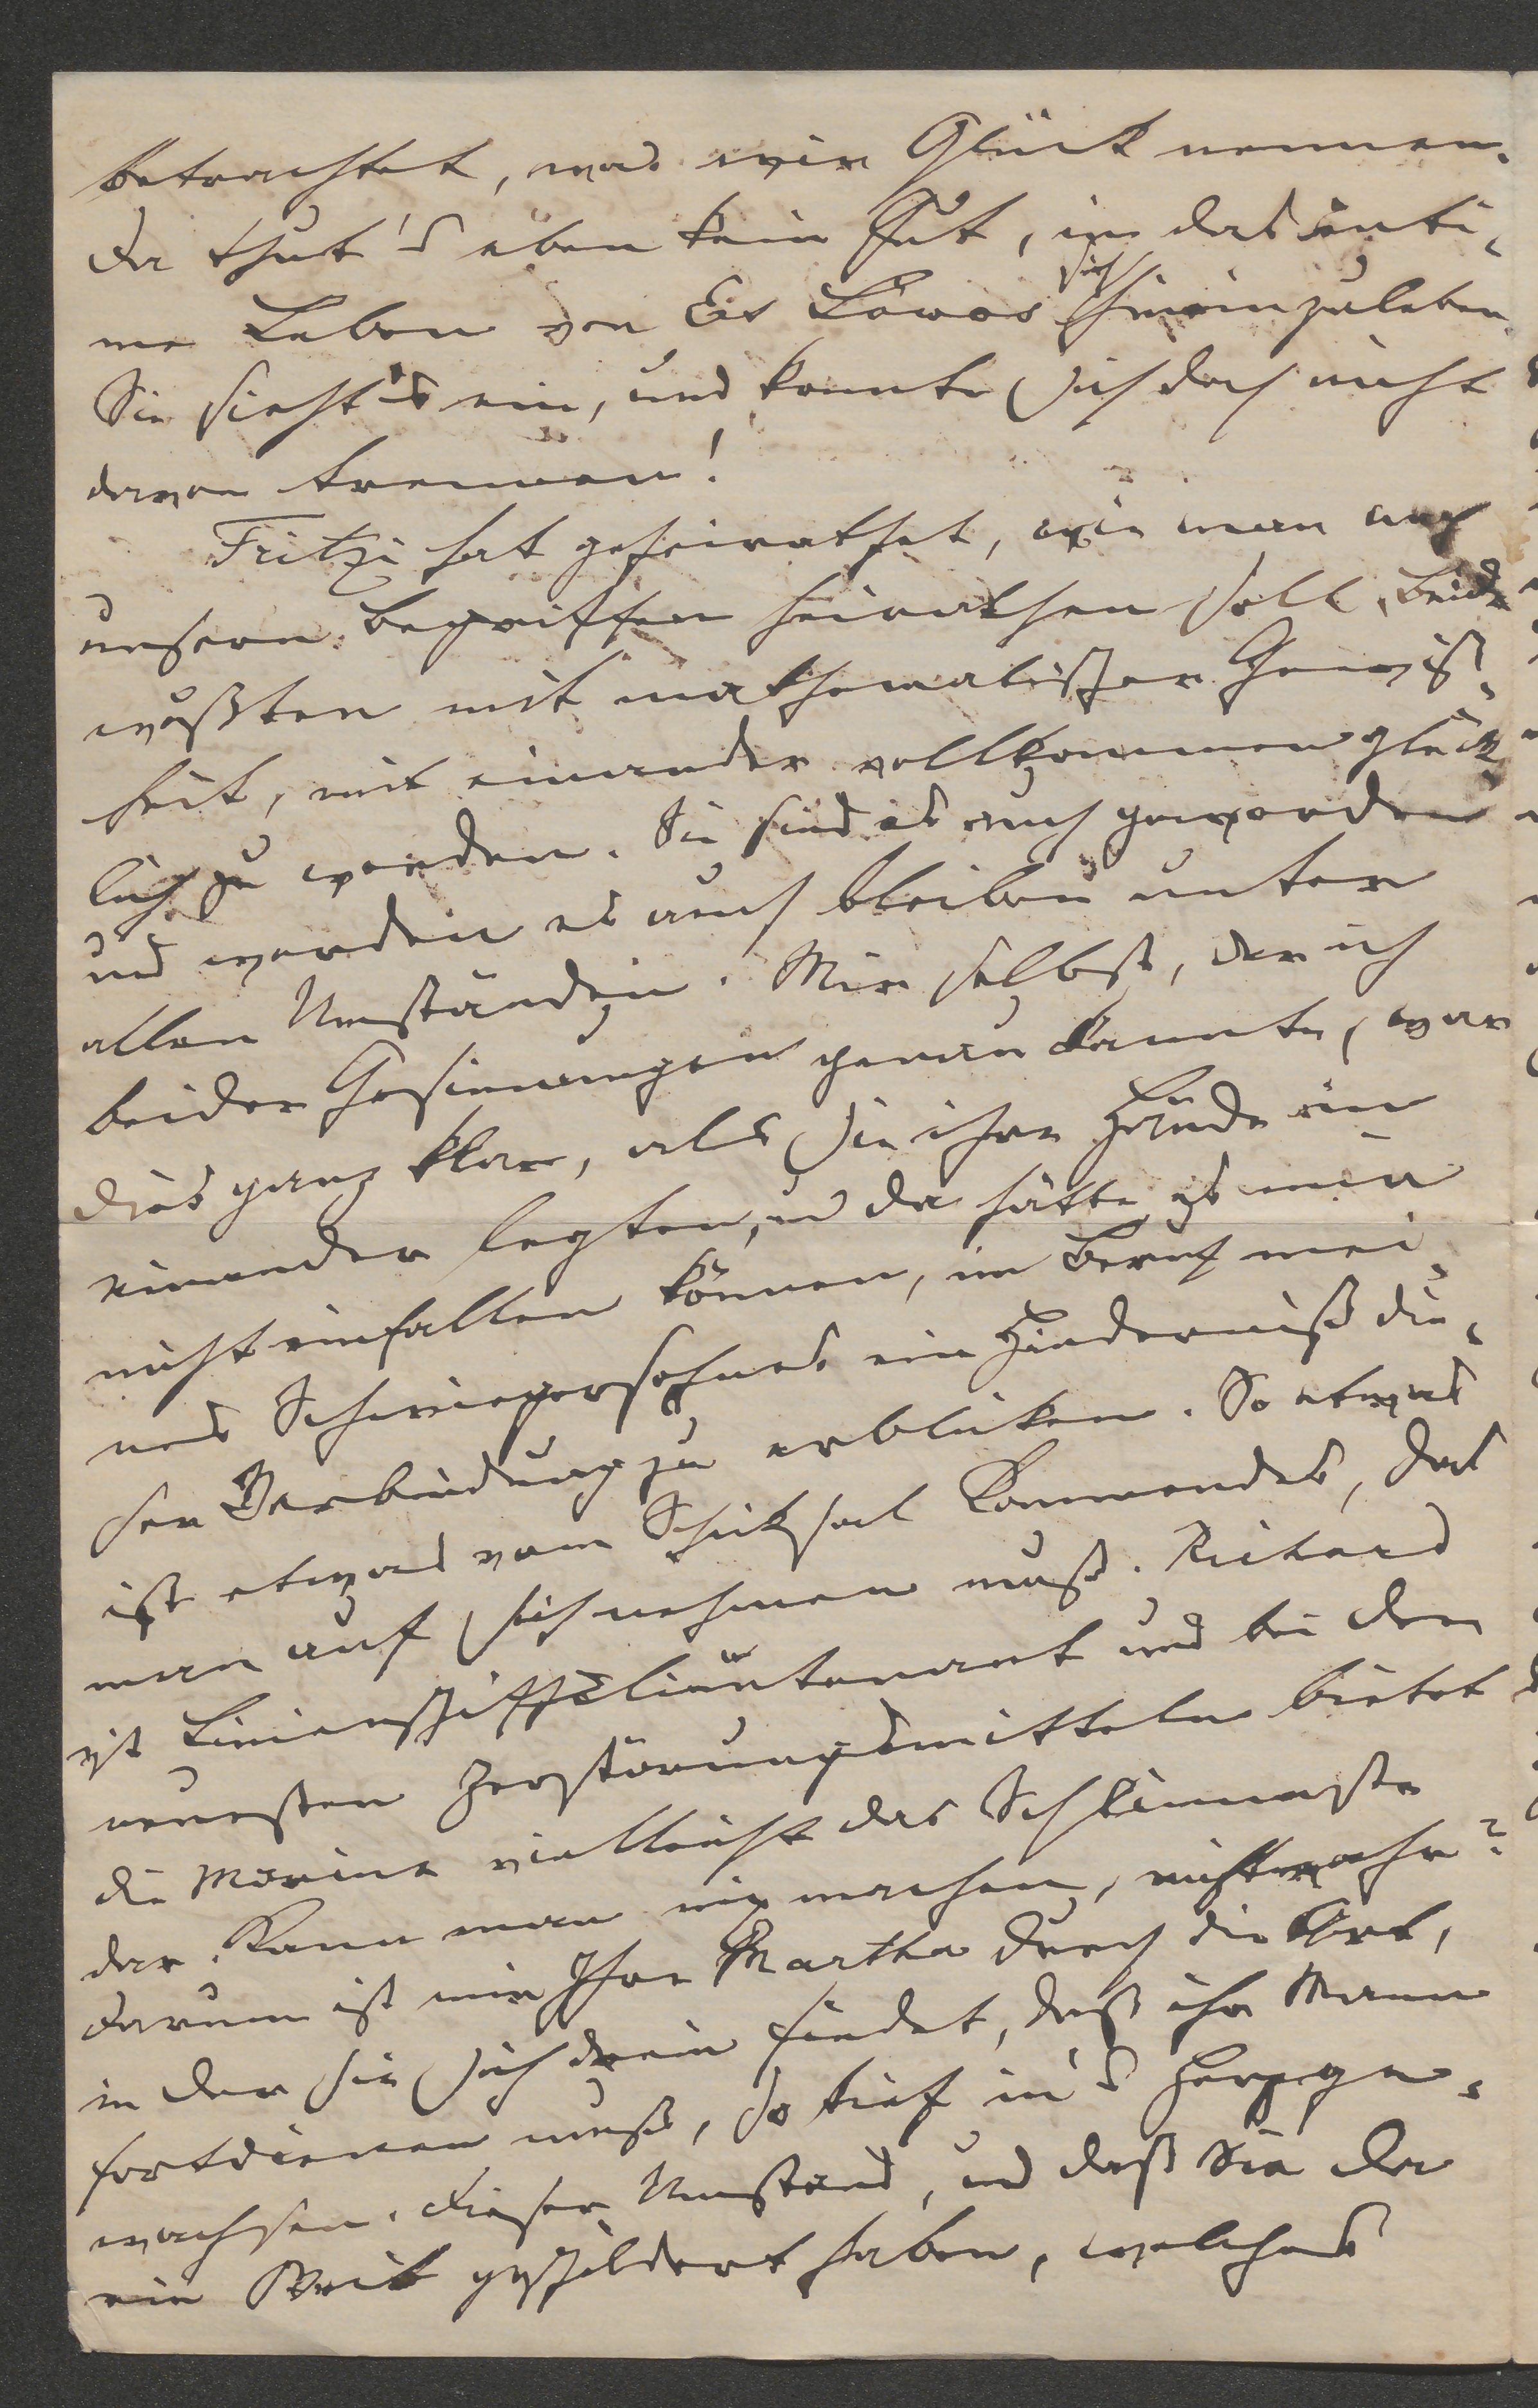 betrachtet, was wir Glück nennen.
Da thut's eben kein Gut, in das inti-
me Leben von Es Löwos sich hineinzuleben.
Sie sieht's ein, und konnte sich doch nicht
davon trennen!
Fritzi hat geheirathet, wie man nach
unsern Begriffen heirathen soll, beide
wußten mit mathematischer Gewiß-
heit, mit einander vollkommen glück-
lich zu werden. Sie sind es auch geworden
und werden es auch bleiben unter
allen Umständen. Mir selbst, der ich
beider Gesinnungen genau kannte, war
dies ganz klar, als sie ihre Hände in
einander legten, und da hätte es mir
nicht einfallen können, im Beruf mei-
nes Schwiegersohnes ein Hinderniß die-
ser Verbindung zu erblicken. So etwas
ist etwas vom Schicksal Kommendes, das
man auf sich nehmen muß. Richard
ist Linienschiffslieutenant und bei den
neuesten Zerstörungsmitteln bietet
die Marine vielleicht das Schlimmste
dar. Kann man nix machen, nicht wahr?
Darum ist mir Ihre Martha durch die Art,
in der sie sich drein findet, daß ihr Mann
fortdienen muß, so tief in's Herz ge-
wachsen. Dieser Umstand, und daß Sie da
ein Weib geschildert haben, welches